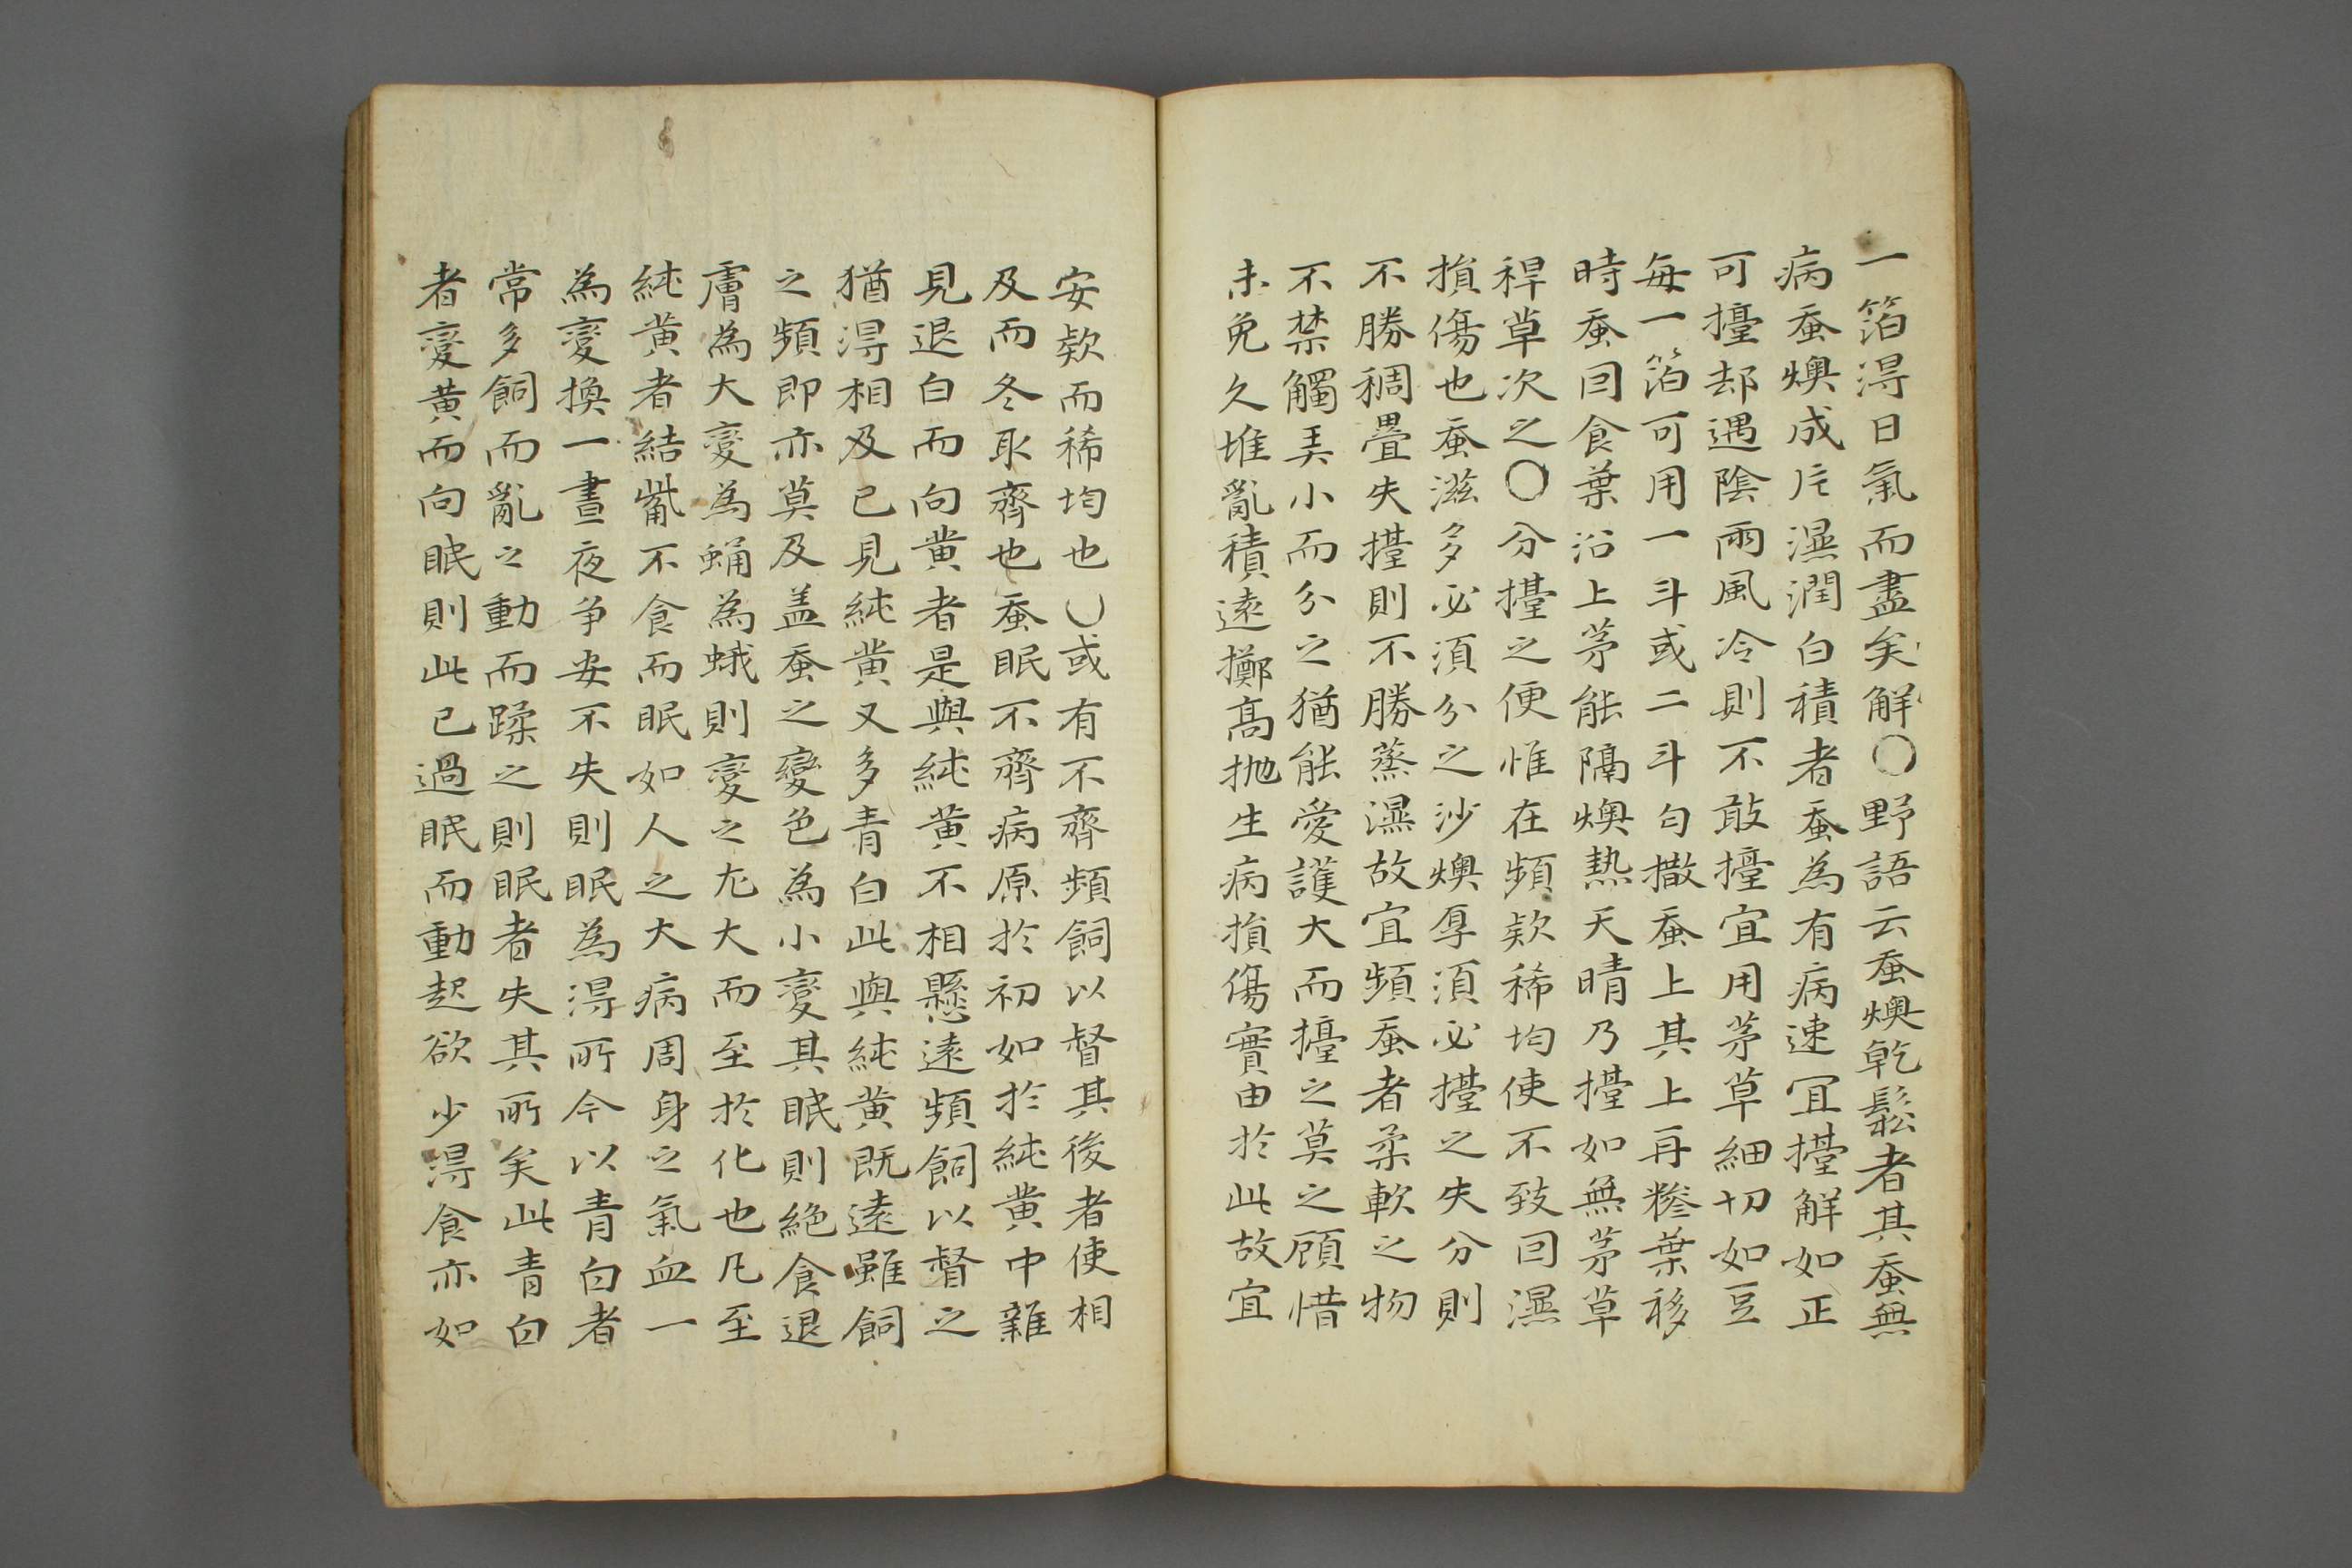 一箔得日氣而盡矣解〇野語云蚕燠乾鬆者其蚕無
病蚕燠成片濕潤白積者蚕為有病速冝擡解如正
可擡却遇陰雨風冷則不敢擡宜用茅草細切如豆
每一箔可用一斗或二斗匀撒蚕上其上再糝葉移
時蚕囙食葉沿上茅能隔燠熱天晴乃擡如無茅草
稈草次之〇分擡之便惟在頻欵稀均使不致囙濕
損傷也蚕滋多必須分之沙燠厚須必擡之失分則
不勝稠疊失擡則不勝蒸濕故宜頻蚕者柔軟之物
不禁觸美小而分之猶能愛護大而擡之莫之顧惜
未免久堆亂積遠擲高抛生病損傷實由扵此故宜
安欵而稀均也〇或有不齊頻飼以督其後者使相
及而冬取齊也蚕眠不齊病原扵初如扵純黄中雜
見退白而向黄者是與純黄不相懸遠頻飼以督之
猶得相及已見純黄又多青白此與純黄既遠雖飼
之頻即亦莫及盖蚕之變色為小變其眠則絶食退
膚為大變為蛹為蛾則變之尤大而至扵化也凡至
純黄者結觜不食而眠如人之大病周身之氣血一
為變換一晝夜争安不失則眠為得所今以青白者
常多飼而亂之動而蹂之則眠者失其所矣此青白
者變黄而向眠則此已過眠而動起欲少得食亦如